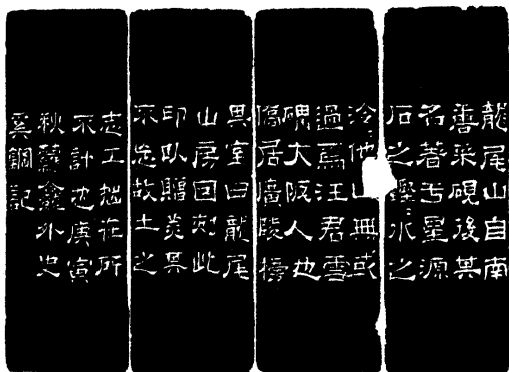 龍尾山自南
唐采硯後其
名著于星源
石之鏗〻水之
泠〻他山無或
過焉汪君雪
礓大阪人也
僑居廣陵榜
其室曰龍尾
山房因刻此
印以贈美其
不忘故土之
志工拙在所
不計也庚寅
秋蘿龕外史
奚鋼記